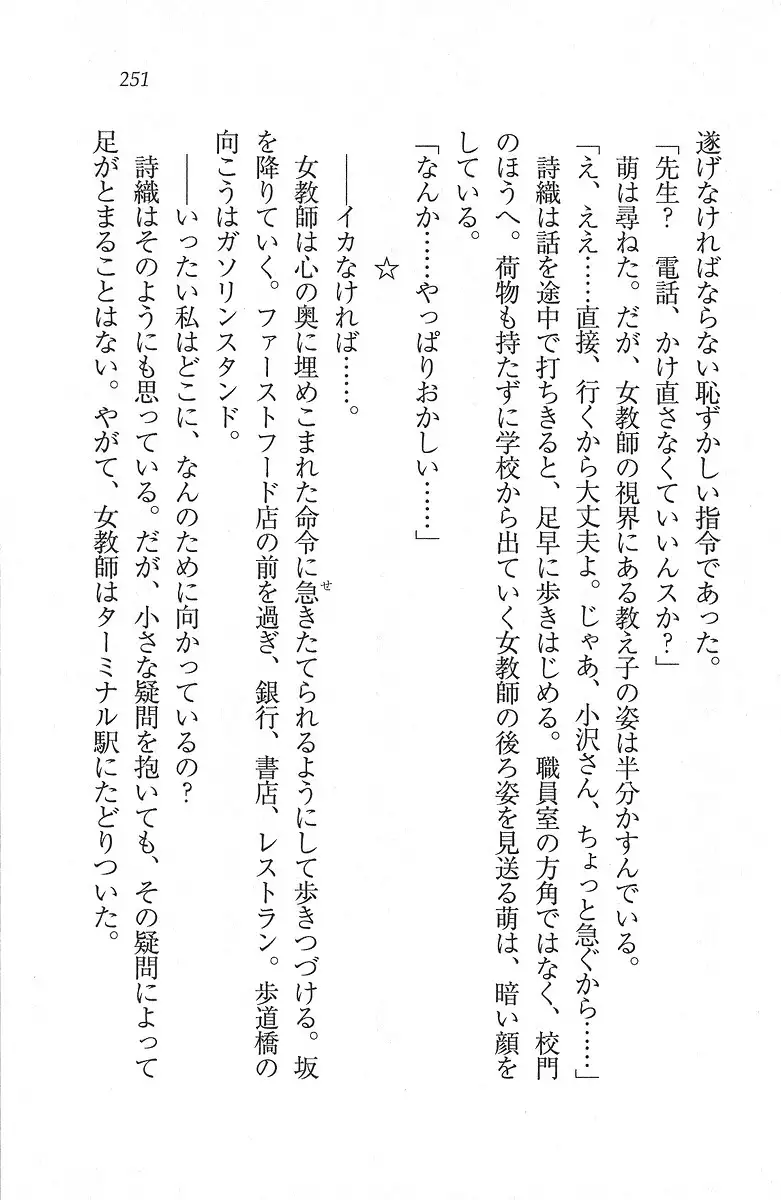 251
遂げなければならない恥ずかしい指令であった。
「先生？　電話、かけ直さなくていいんスか？」
萌は尋ねた。だが、女教師の視界にある教え子の姿は半分かすんでいる。
「え、ええ……直接、行くから大丈夫よ。じゃあ、小沢さん、ちょっと急ぐから……」
詩織は話を途中で打ちきると、足早に歩きはじめる。職員室の方角ではなく、校門
のほうへ。荷物も持たずに学校から出ていく女教師の後ろ姿を見送る萌は、暗い顔を
している。
「なんか……やっぱりおかしい……」
☆
──イカなければ……。
女教師は心の奥に埋めこまれた命令に急きたてられるようにして歩きつづける。坂
せ
を降りていく。ファーストフード店の前を過ぎ、銀行、書店、レストラン。歩道橋の
向こうはガソリンスタンド。
──いったい私はどこに、なんのために向かっているの？
詩織はそのようにも思っている。だが、小さな疑問を抱いても、その疑問によって
足がとまることはない。やがて、女教師はターミナル駅にたどりついた。